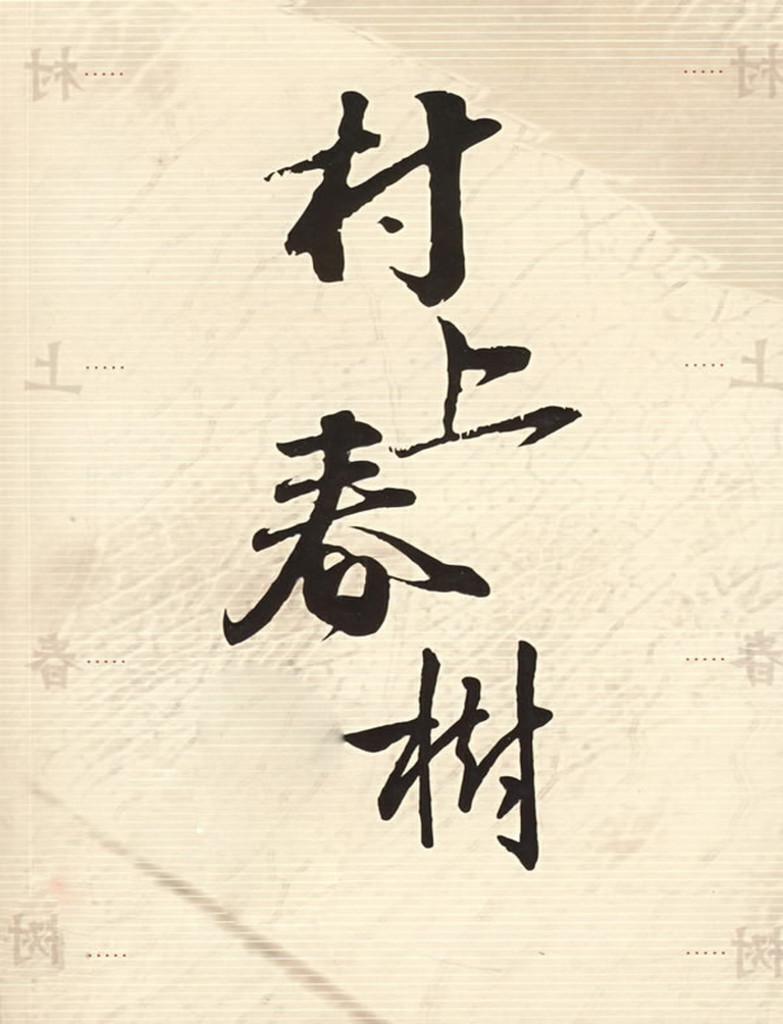 村
上
春
樹
村
上
春
树
村
上
春
树